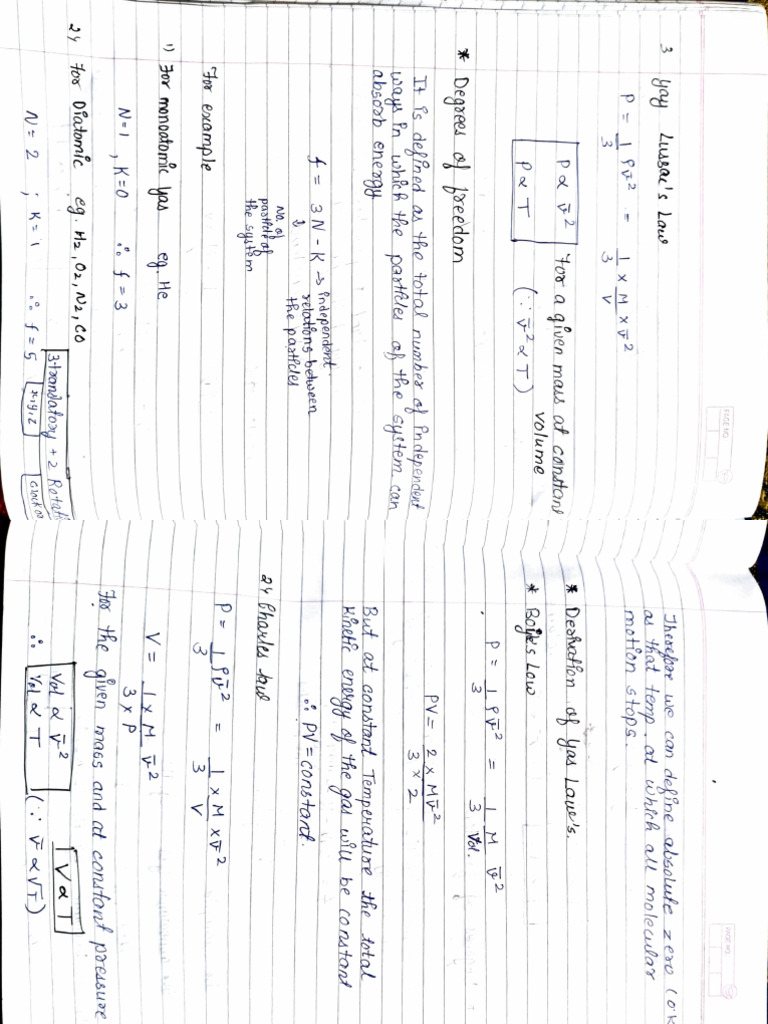 PAGE NO.
3 Gay Lussac's Law
P = 1/3 ρv̄² = 1/3 × M/V × v̄²
P ∝ v̄² For a given mass at constant volume
P ∝ T (∵ v̄² ∝ T)
* Degrees of freedom
It is defined as the total number of independent
ways in which the particles of the system can
absorb energy
f = 3N - K → independent
relations between
the particles
↓
No. of
particle of
the system
For example
1) For monoatomic gas eg. He
N=1 , K=0 ∴ f = 3
2) For Diatomic eg. H2, O2, N2, CO
3-translatory + 2 Rotati
N = 2 ; K = 1 ∴ f = 5 x,y,z
PAGE NO.
Therefore we can define absolute zero (0°K
as that temp. at which all molecular
motion stops.
* Derivation of Gas Law's.
* Boyle's Law
P = 1/3 ρv̄² = 1/3 M/Vol. v̄²
PV = 2/3 × Mv̄²/2
But at constant Temperature the total
kinetic energy of the gas will be constant
∴ PV = constant.
2) Charles law
P = 1/3 ρv̄² = 1/3 × M/V × v̄²
V = 1/3 × M/P v̄²
For the given mass and at constant pressure
Vol ∝ v̄² V ∝ T
∴ Vol ∝ T (∵ v̄ ∝ √T)